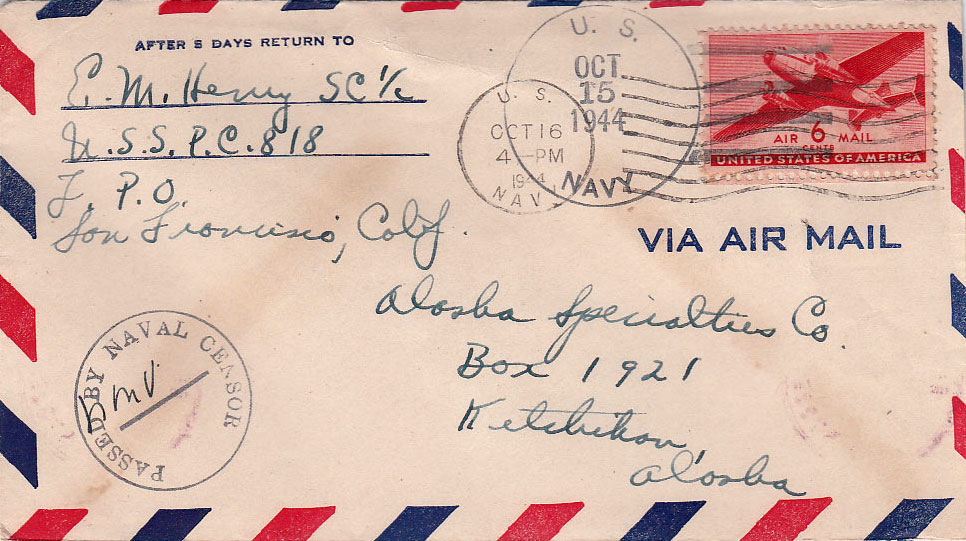 AFTER 5 DAYS RETURN TO
E. M. Henry SC 1/c
U.S.S. P.C. 818
F. P. O.
San Francisco, Calif.
U. S.
OCT 16
4-PM
1944
NAVY
U. S.
OCT
15
1944
NAVY
AIR 6 MAIL
CENTS
UNITED STATES OF AMERICA
VIA AIR MAIL
Alaska Specialties Co.
Box 1921
Ketchikan
Alaska
PASSED BY NAVAL CENSOR